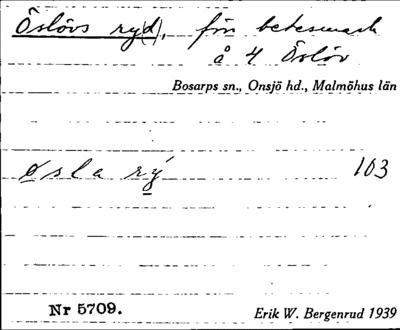 Öslövs ry(d), förr betesmark
å 4 Öslöv
Bosarps sn., Onsjö hd., Malmöhus län
øsla rý 103
Nr 5709.
Erik W. Bergenrud 1939